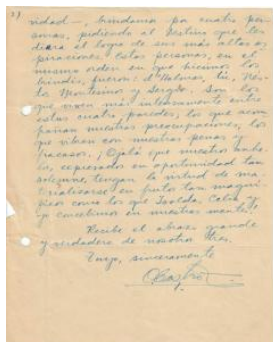 27
vidad—, brindamos por cuatro per-
sonas, pidiendo al Destino que les
diera el logro de sus más altas as-
piraciones. Estas personas, en el
mismo orden en que hicimos los
brindis, fueron: d'Halmar, tú,
to Montesinos y Sergio. Son los
que viven más intensamente entre
estas cuatro paredes, los que acom-
pañan nuestras preocupaciones, los
que vibran con nuestras penas y
fracasos. ¡Ojalá que nuestros anhe-
los, expresados en oportunidad tan
solemne, tengan la virtud de ma-
terializarse en frutos tan magní-
ficos como los que Isolda, Celia y
yo concebimos en nuestras mentes!
Recibe el abrazo grande
y verdadero de nosotros tres.
Tuyo, sinceramente
OCastro